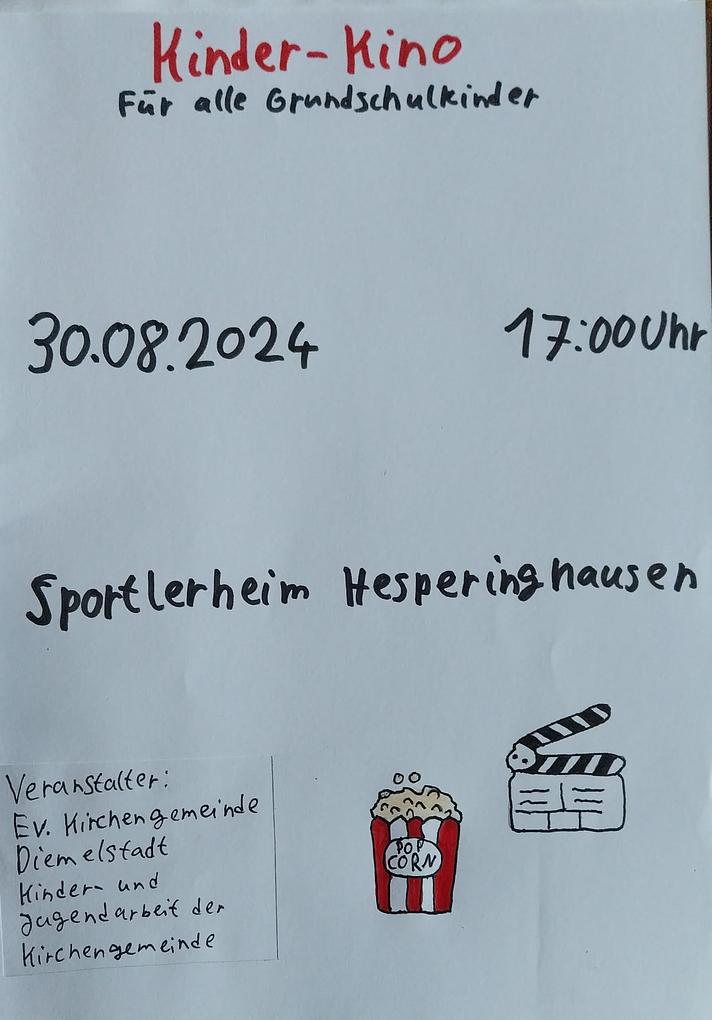 Kinder-Kino
Für alle Grundschulkinder
30.08.2024 17:00 Uhr
Sportlerheim Hesperinghausen
Veranstalter:
Ev. Kirchengemeinde
Diemelstadt
Kinder- und
Jugendarbeit der
Kirchengemeinde
POP
CORN